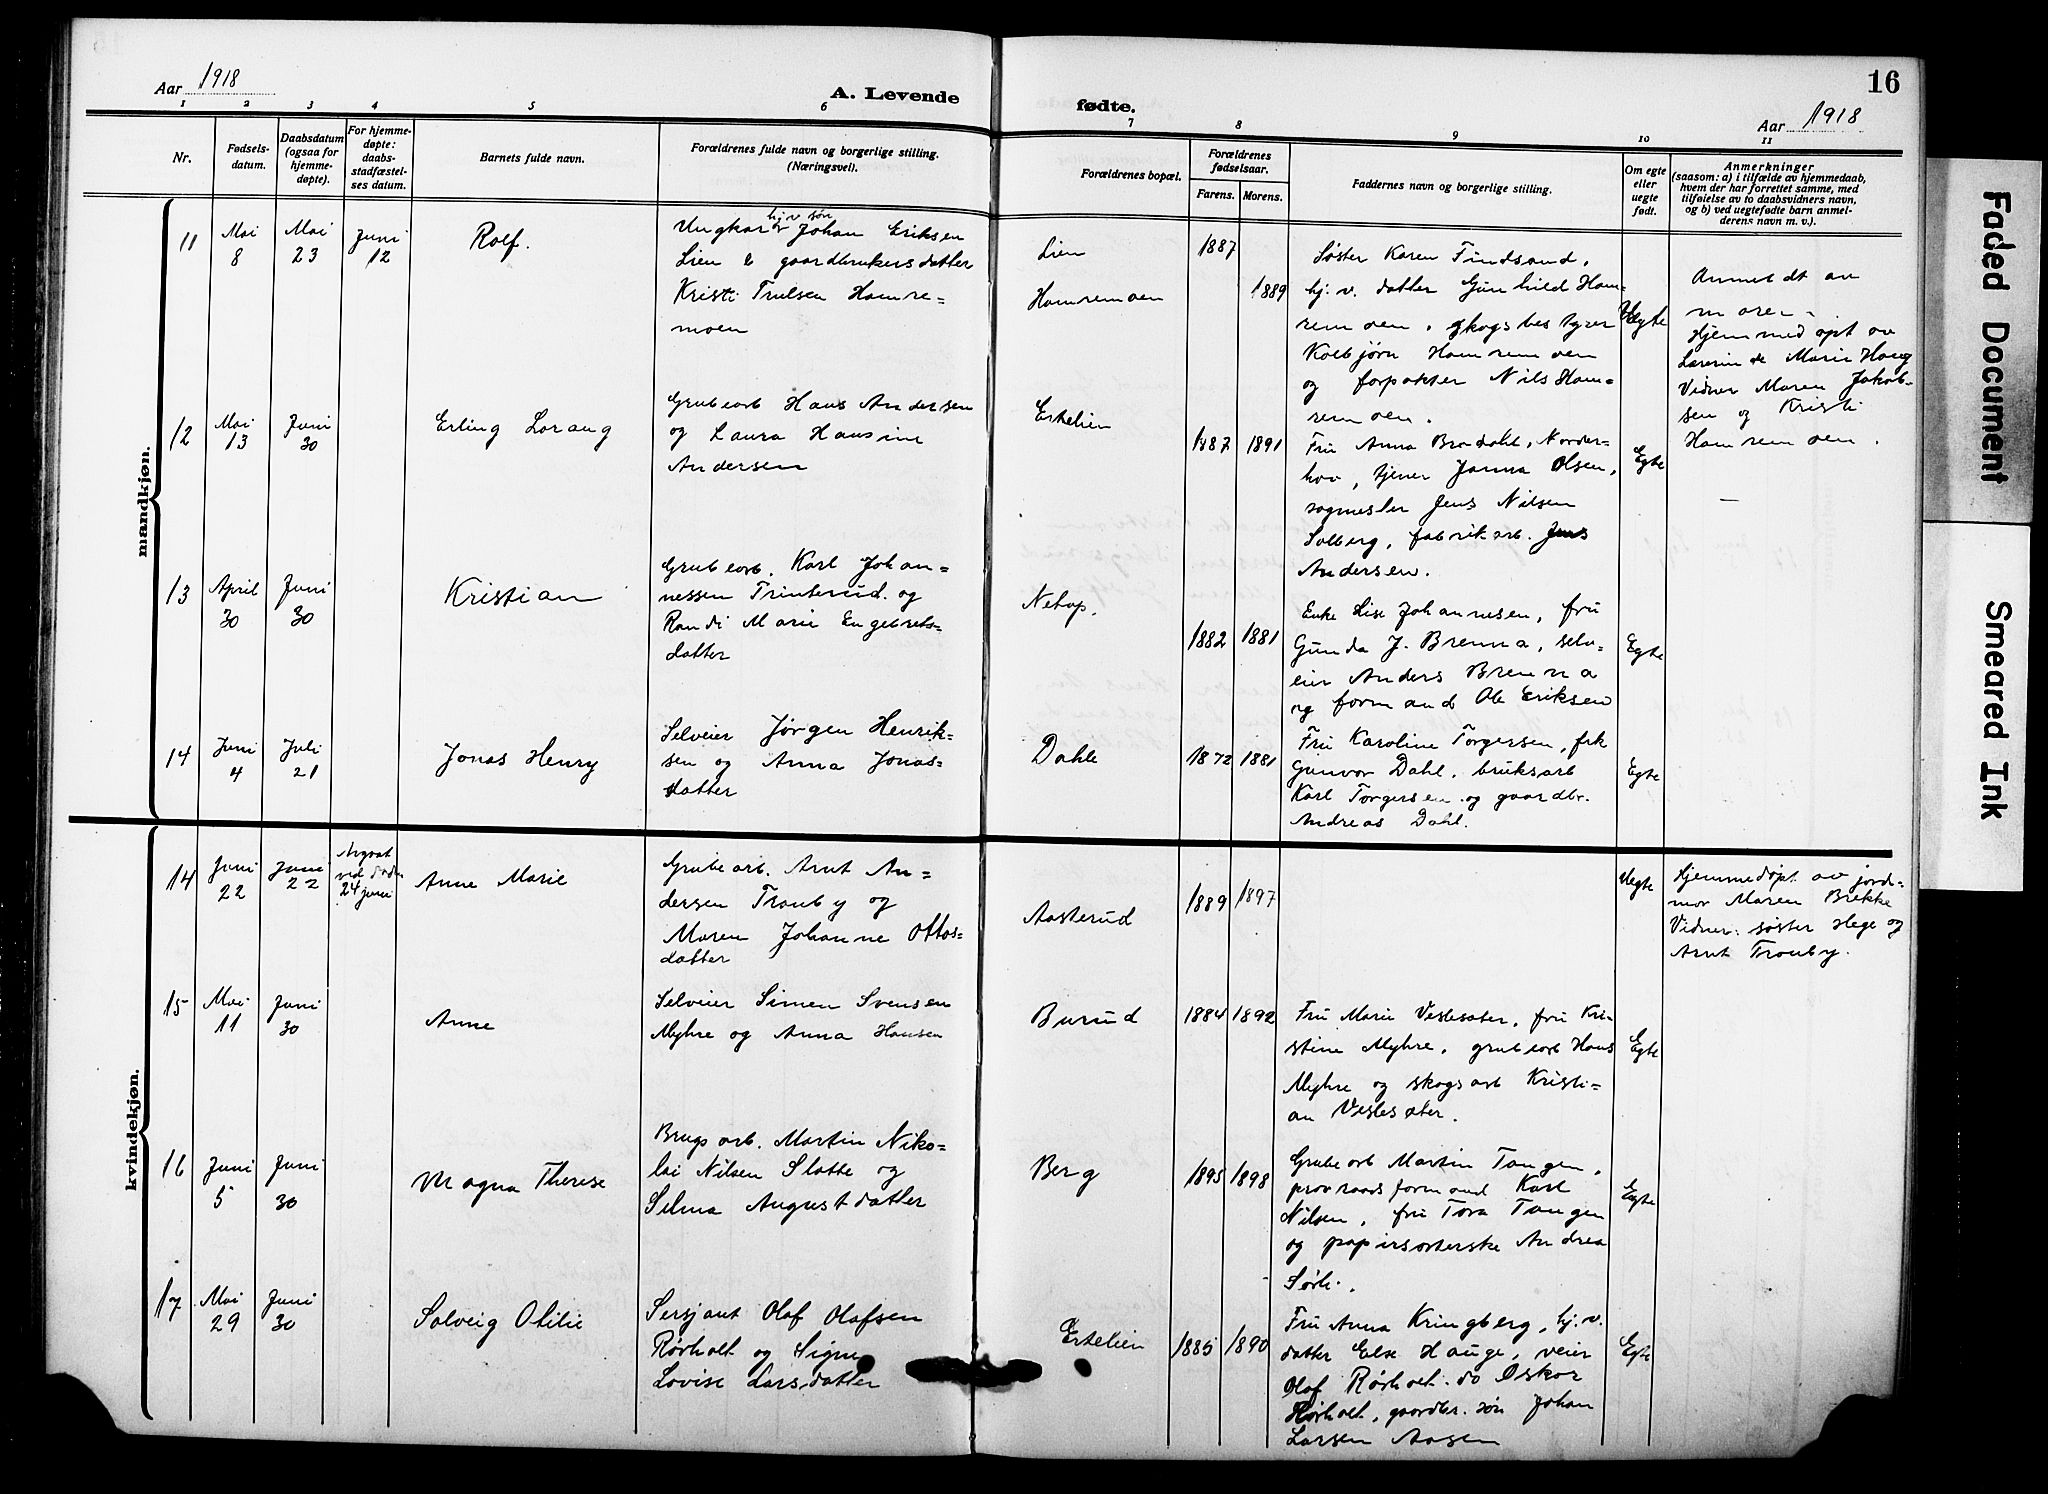 16
Aar 1918
A. Levende
fødte.
Aar 1918
1 2 3 4 5 6 7 8 9 10 11
Nr.
Fødsels-
datum.
Daabsdatum
(ogsaa for
hjemme-
døpte).
For hjemme-
døpte:
daabs-
stadfæstel-
ses datum.
Barnets fulde navn.
Forældrenes fulde navn og borgerlige stilling.
(Næringsvei).
Forældrenes bopæl.
Forældrenes
fødselsaar.
Farens. Morens.
Faddernes navn og borgerlige stilling.
Om egte
eller
uegte
født.
Anmerkninger
(saasom: a) i tilfælde av hjemmedaab,
hvem der har forrettet samme, med
tilføielse av to daabsvidners navn,
og b) ved uegtefødte barn anmel-
derens navn m. v.).
mandkjøn.
11
Mai
8
Mai
23
Juni
12
Rolf.
hj. v. søn
Ungkar Johan Eriksen
Lien & gaardbrukersdatter
Kristi Trulsen Hamre-
moen
Lien
Hamremoen
1887
1889
Søster Karen Tindsand,
hj. v. datter Gunhild Ham-
remoen, skogsbestyrer
Kolbjørn Hamremoen
og forpakter Nils Ham-
remoen.
Uegte
Anmeldt av
moren.
Hjemmedøpt av
Lærerinde Marie Haug
Vidner Maren Jakob-
sen og Kristi
Hamremoen.
12
Mai
13
Juni
30
Erling Lorang
Grubearb Hans Andersen
og Laura Hansine
Andersen
Ertelien
1887 1891
Fru Anna Bradahl, Norder-
hov, tjener Janna Olsen,
sagmester Jens Nilsen
Solberg, fabrikarb. Jens
Andersen.
Egte
—
13
April
30
Juni
30
Kristian
Grubearb. Karl Johan-
nessen Trinterud og
Randi Marie Engebrets-
datter
Netop.
1882 1881
Enke Lise Johannesen, fru
Gunda J. Brenna, selv-
eier Anders Brenna
og formand Ole Eriksen
Egte
14
Juni
4
Juli
21
Jonas Henry
Selveier Jørgen Henrik-
sen og Anna Jonas-
datter
Dahle
1872 1881
Fru Karoline Torgersen, frk
Gunvor Dahl, bruksarb
Karl Torgersen og gaardbr.
Andreas Dahl.
Egte
kvindekjøn.
14
Juni
22
Juni
22
Avgaat
ved døden
24 juni
Anne Marie
Grubearb. Arnt An-
dersen Tronby og
Maren Johanne Ottos-
datter
Aasterud
1889 1897
Uegte
Hjemmedøpt av jord-
mor Maren Brekke
Vidner: søster Hege og
Arnt Tronby.
15
Mai
11
Juni
30
Anne
Selveier Simen Svensen
Myhre og Anna Hansen
Burud
1884 1892
Fru Marie Veslesæter, fru Kri-
stine Myhre, grubearb Hans
Myhre og skogsarb Kristi-
an Veslesæter.
Egte
16
Juni
5
Juni
30
Magna Therese
Brugsarb. Martin Niko-
lai Nilsen Slatte og
Selma Augustdatter
Berg
1895 1898
Grubearb Martin Tangen,
formand Karl
Nilsen, fru Tora Tangen
og papirsorterske Andrea
Sørli.
Egte
17
Mai
29
Juni
30
Solveig Otilie
Sersjant Olaf Olafsen
Rørholt og Signe
Lovise Larsdatter
Ertelien
1885 1890
Fru Anna Kringberg, hj. v.
datter Else Hauge, veier
Olaf Rørholt. do Oskar
Rørholt, gaardbr. søn Johan
Larsen Aasen
Egte
Faded Document
Smeared Ink